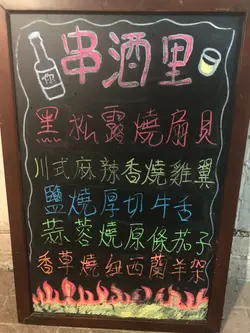 串酒里
黑松露燒扇貝
川式麻辣香燒雞翼
鹽燒厚切牛舌
蒜蓉燒原條茄子
香草燒纽西蘭羊架